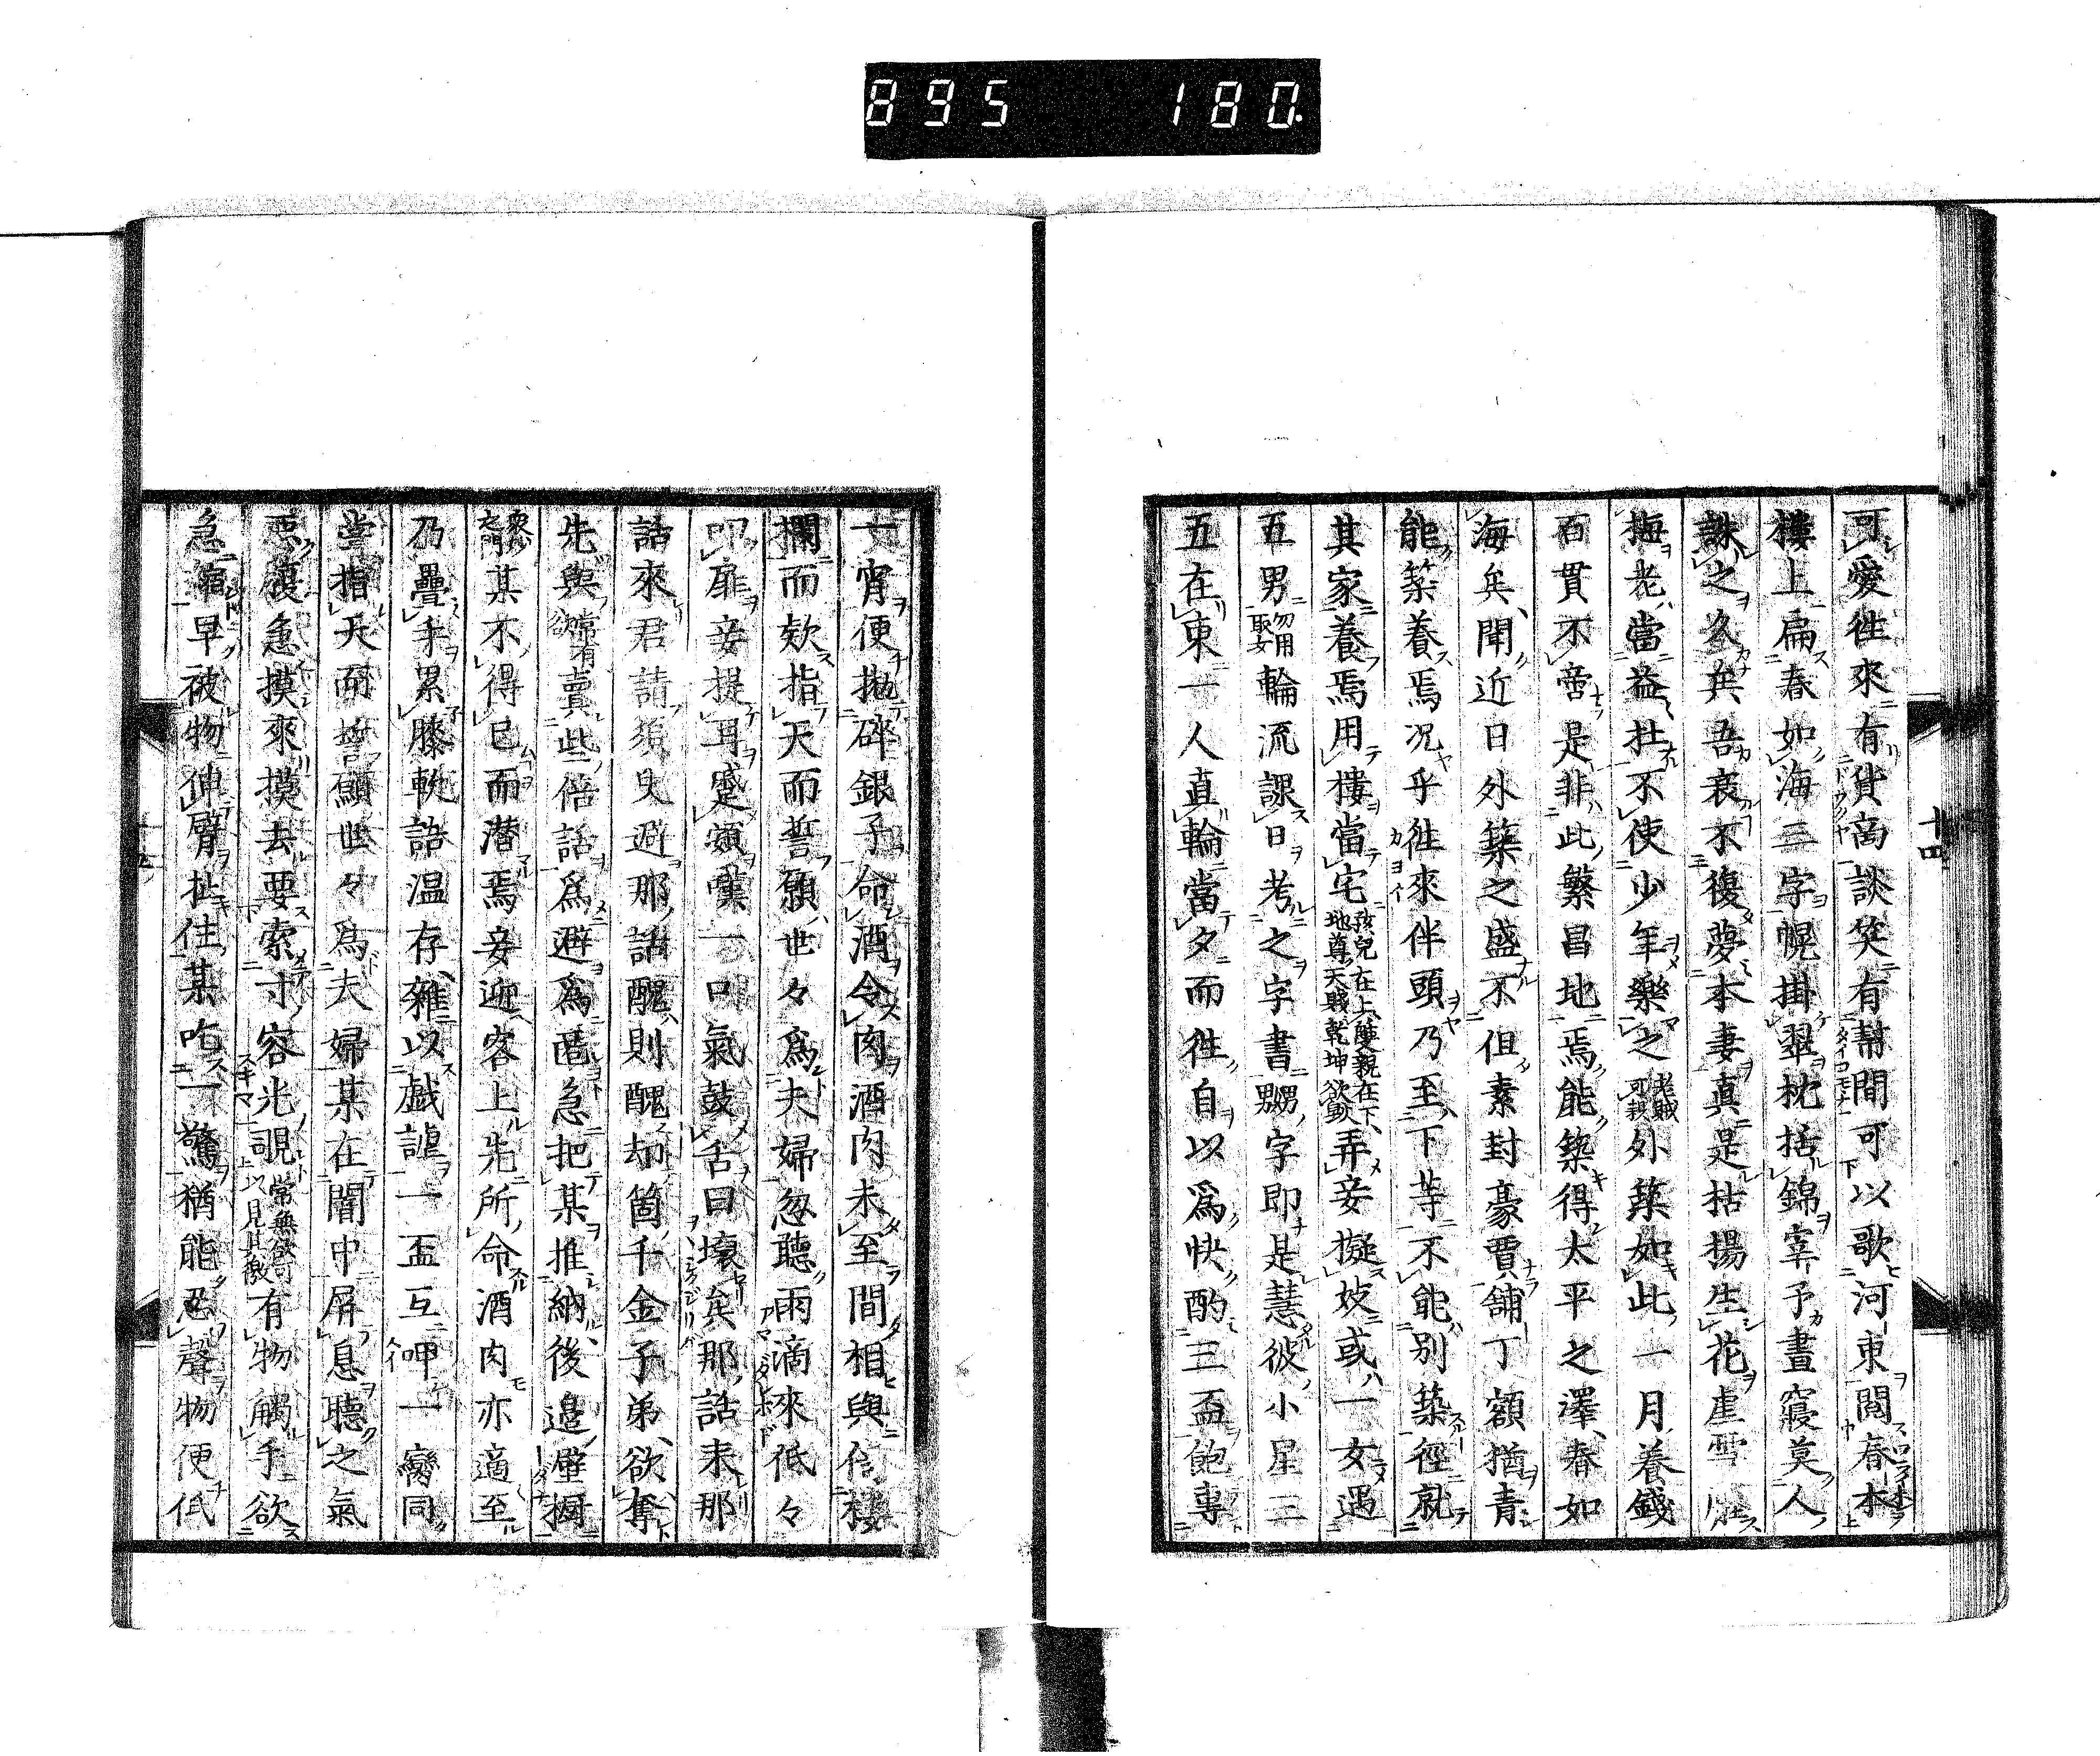 895 180.
十四
可愛往來有貨商談笑有幇間可以歌河東閲春本
樓上扁春如海三字幌掛翠枕括錦宰予晝寢莫人
誅之久矣吾衰不復夢本妻真是枯楊生花虐雪
梅老當益壮不使少年樂之老賊可親外築如此一月養錢
百貫不啻是非此繁昌地焉能築得太平之澤春如
海矣聞近日外築之盛不但素封豪賈舗丁額猶青
能築養焉况乎徃來伴頭乃至下等不能別築徑就
其家養焉用樓當宅孩兒在上雙親在下地尊天賤乾坤欲弄妾擬妓或一女遇
五男勿用取女輪流課日考之字書嬲字即是慧彼小星三
五在東一人直輪當夕而徃自以爲快酌三盃飽專
一宵便拋碎銀子命酒令肉酒肉未至間相與倚樓
欄而欸指天而誓願世々爲夫婦忽聽雨滴來低々
叩扉妾提耳蹙額嘆一口氣鼓舌曰壞矣那話来那
話來君請須臾避那話醜則醜却箇千金子弟欲奪
先與若有欲些倍話爲避爲匿急把某推納後邊壁櫥
衆妙之門某不得已而潜焉妾迎客上先所命酒肉亦適至
乃疊手累膝軟語温存雜以戯謔一盃互呷一臠同
甞指天而誓願世々爲夫婦某在闇中屏息聽之氣
急摸來摸去要索寸容光覗常無欲可以見其徼有物觸手欲
急縮早被物伸臂扯住某吃一驚猶能忍聲物便低